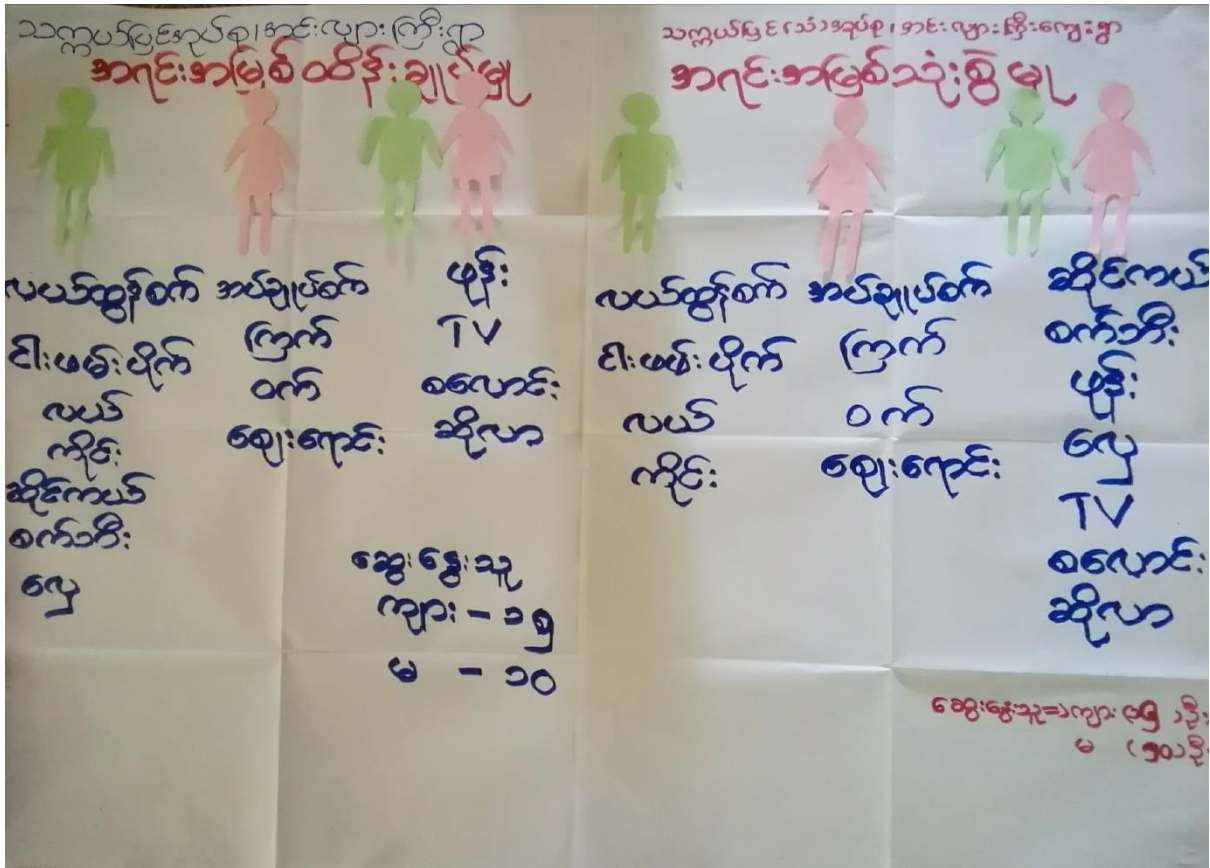 သက္ကယ်ပြင်အုပ်စု၊အင်းလျားကြီးရွာ
အရင်းအမြစ်ထိန်းချုပ်မှု
လယ်ထွန်စက်
ငါးဖမ်းပိုက်
လယ်
ကိုင်း
ဆိုင်ကယ်
စက်ဘီး
လှေ
အပ်ချုပ်စက်
ကြက်
ဝက်
ဈေးရောင်း
ဖုန်း
TV
စလောင်း
ဆိုလာ
ဆွေးနွေးသူ
ကျား - ၁၅
မ - ၁၀
သက္ကယ်ပြင်(သံ)အုပ်စု၊အင်းလျားကြီးကျေးရွာ
အရင်းအမြစ်သုံးစွဲမှု
လယ်ထွန်စက်
ငါးဖမ်းပိုက်
လယ်
ကိုင်း
အပ်ချုပ်စက်
ကြက်
ဝက်
ဈေးရောင်း
ဆိုင်ကယ်
စက်ဘီး
ဖုန်း
လှေ
TV
စလောင်း
ဆိုလာ
ဆွေးနွေးသူ=>ကျား
မ